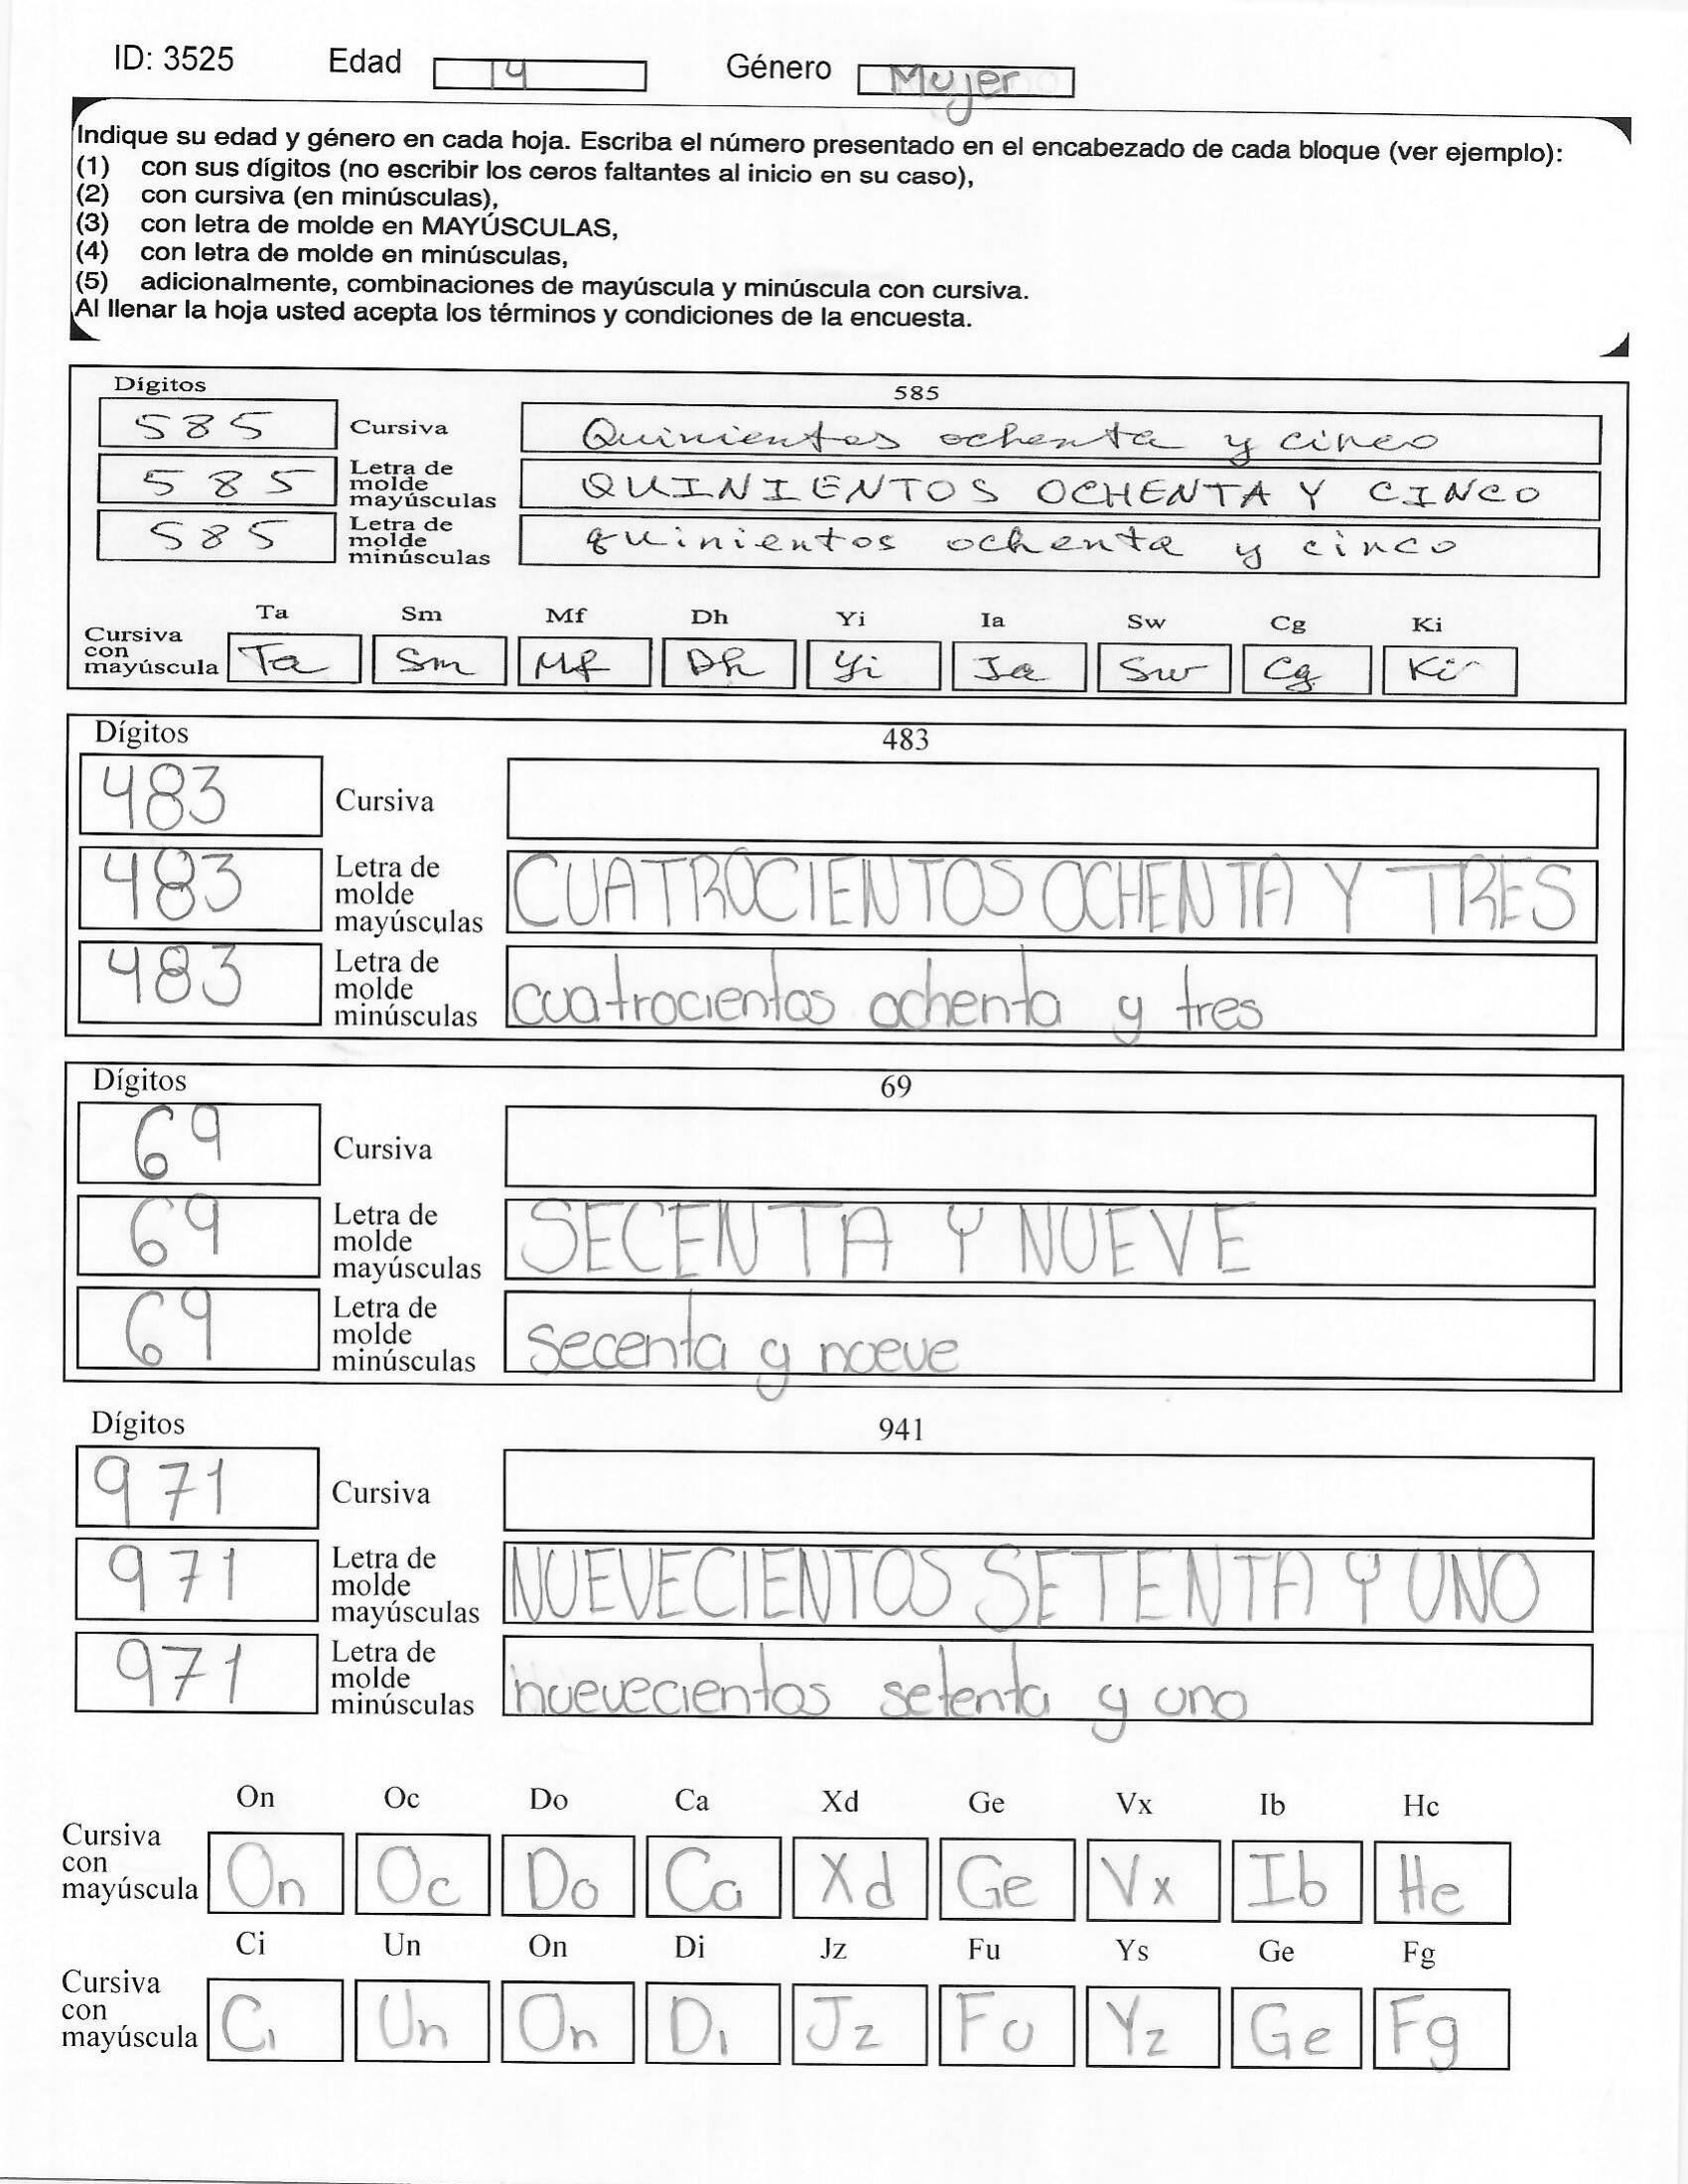 ID: 3525 Edad 14 Género Mujer
Indique su edad y género en cada hoja. Escriba el número presentado en el encabezado de cada bloque (ver ejemplo):
(1) con sus dígitos (no escribir los ceros faltantes al inicio en su caso),
(2) con cursiva (en minúsculas),
(3) con letra de molde en MAYÚSCULAS,
(4) con letra de molde en minúsculas,
(5) adicionalmente, combinaciones de mayúscula y minúscula con cursiva.
Al llenar la hoja usted acepta los términos y condiciones de la encuesta.
Dígitos 585
585 Cursiva Quinientos ochenta y cinco
585 Letra de molde mayúsculas QUINIENTOS OCHENTA Y CINCO
585 Letra de molde minúsculas quinientos ochenta y cinco
Ta Sm Mf Dh Yi Ia Sw Cg Ki
Cursiva con mayúscula Ta Sm Mf Dh Yi Ia Sw Cg Ki
Dígitos 483
483 Cursiva
483 Letra de molde mayúsculas CUATROCIENTOS OCHENTA Y TRES
483 Letra de molde minúsculas cuatrocientos ochenta y tres
Dígitos 69
69 Cursiva
69 Letra de molde mayúsculas SECENTA Y NUEVE
69 Letra de molde minúsculas secenta y nueve
Dígitos 941
971 Cursiva
971 Letra de molde mayúsculas NUEVECIENTOS SETENTA Y UNO
971 Letra de molde minúsculas nuevecientos setenta y uno
On Oc Do Ca Xd Ge Vx Ib Hc
Cursiva con mayúscula On Oc Do Ca Xd Ge Vx Ib He
Ci Un On Di Jz Fu Ys Ge Fg
Cursiva con mayúscula Ci Un On Di Jz Fu Yz Ge Fg